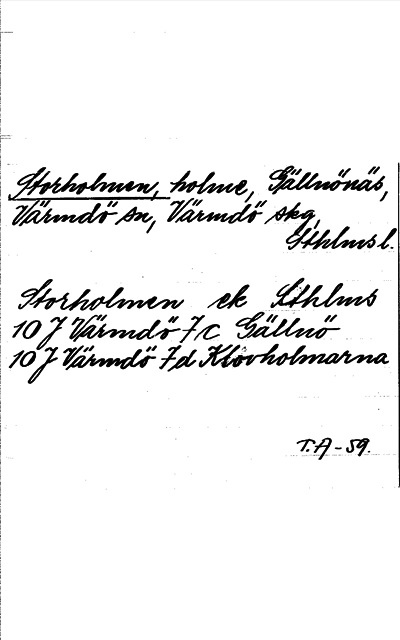 Storholmen, holme, Gällnönäs,
Värmdö sn, Värmdö skg,
Sthlms l.
Storholmen ek Sthlms
10 J Värmdö 7c Gällnö
10 J Värmdö 7d Klovholmarna
T.A-59.